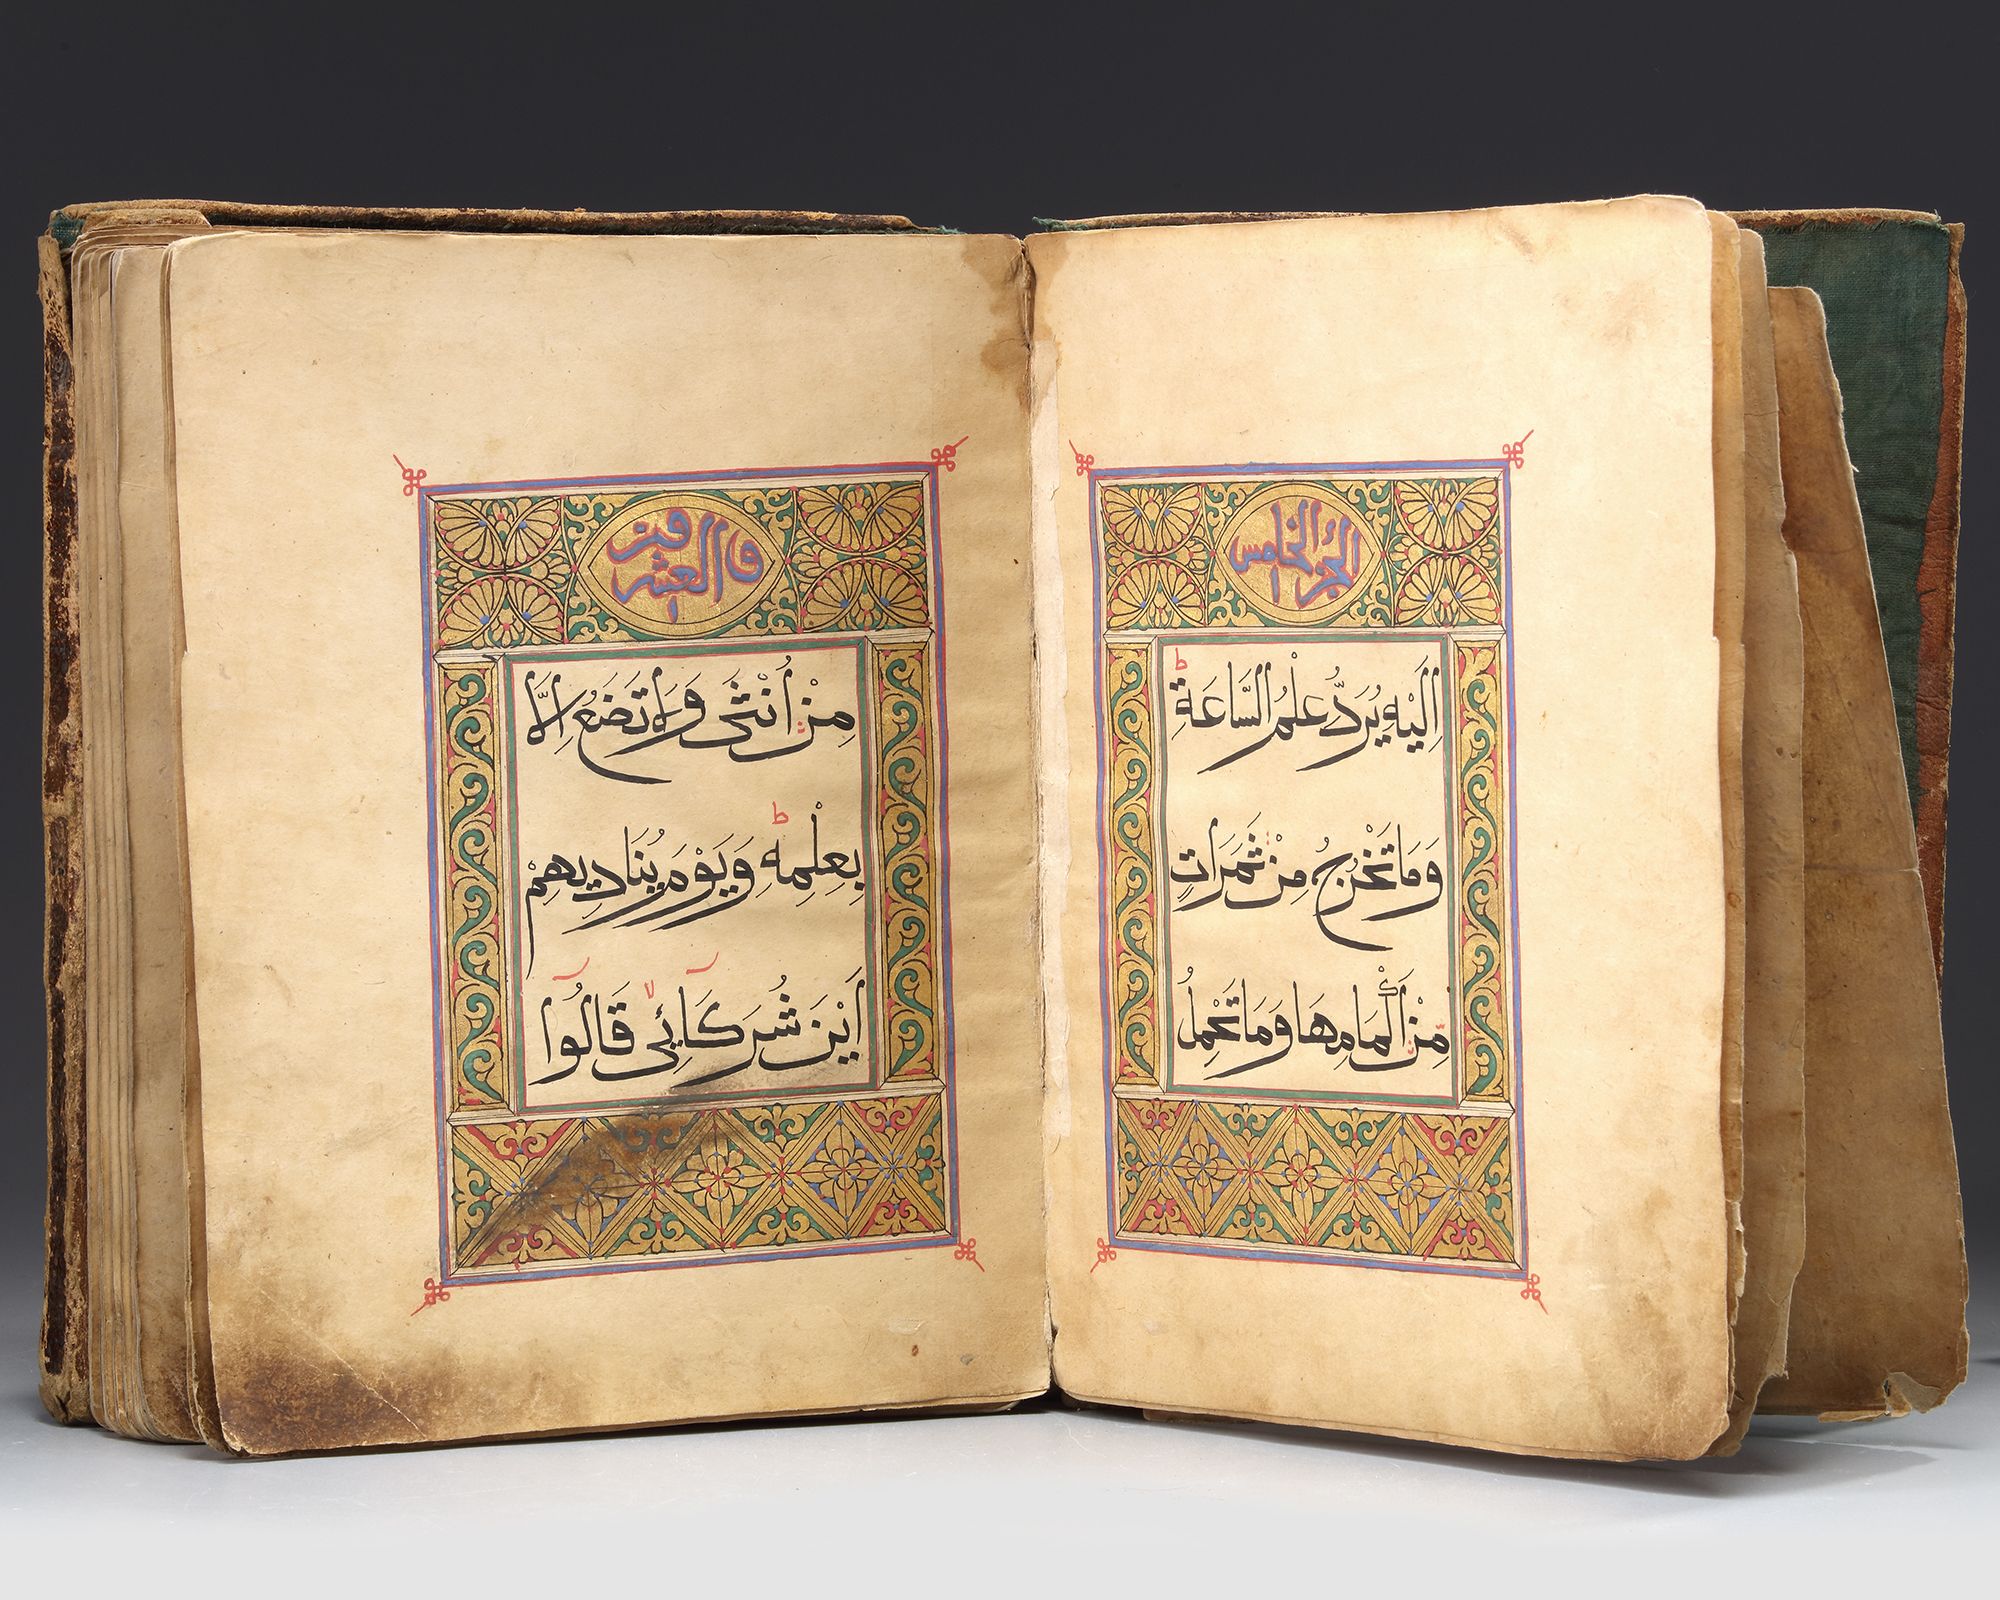 الجزء الخامس
اِلَيْهِ يُرَدُّ عِلْمُ السَّاعَةِ ط
وَمَا تَخْرُجُ مِنْ ثَمَرَاتٍ
مِنْ اَكْمَامِهَا وَمَا تَحْمِلُ
والعشرين
مِنْ اُنْثَى وَلَا تَضَعُ اِلَّا
بِعِلْمِهِ ط وَيَوْمَ يُنَادِيهِمْ
اَيْنَ شُرَكَآئِي لا قَالُوآ